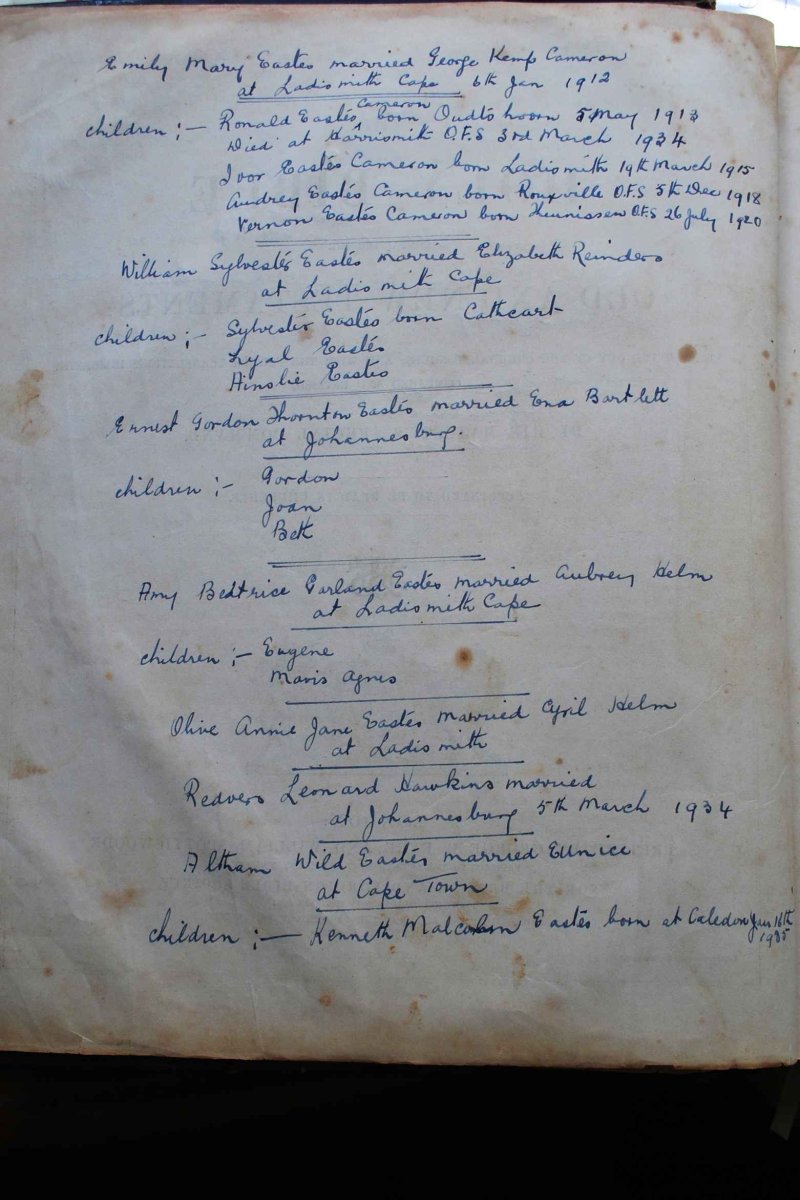 Emily Mary Eastes married George Kemp Cameron
at Ladismith Cape 6th Jan 1912
children :- Ronald Eastes Cameron born Oudtshoorn 5 May 1913
Died at Harrismith O.F.S 3rd March 1934
Ivor Eastes Cameron born Ladismith 19th March 1915
Audrey Eastes Cameron born Rouxville O.F.S 5th Dec 1918
Vernon Eastes Cameron born Theunissen O.F.S 26 July 1920
William Sylvester Eastes married Elizabeth Reinders
at Ladismith Cape
children :- Sylvester Eastes born Cathcart
Lyal Eastes
Ainslie Eastes
Ernest Gordon Thornton Eastes married Ena Bartlett
at Johannesburg.
children :- Gordon
Joan
Beth
Amy Beatrice Garland Eastes married Aubrey Helm
at Ladismith Cape
children :- Eugene
Maris Agnes
Olive Annie Jane Eastes married Cyril Helm
at Ladismith
Redvers Leonard Hawkins married
at Johannesburg 5th March 1934
Altham Wild Eastes married Eunice
at Cape Town
children :- Kenneth Malcolm Eastes born at Caledon Jan 16th
1935